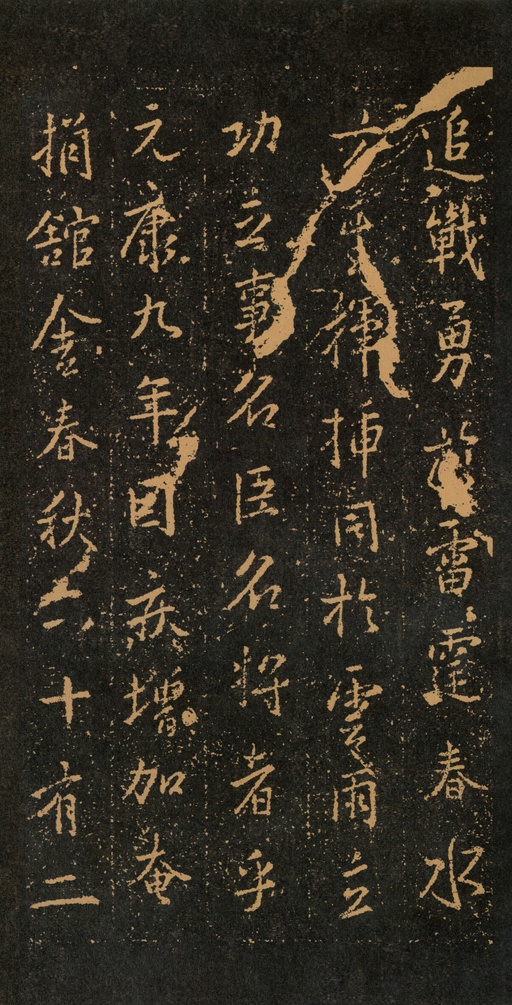 追戰勇於雷霆春水
方生揮挿同於雲雨立
功立事名臣名將者乎
元康九年因疾增加奄
捐館舍春秋六十有二